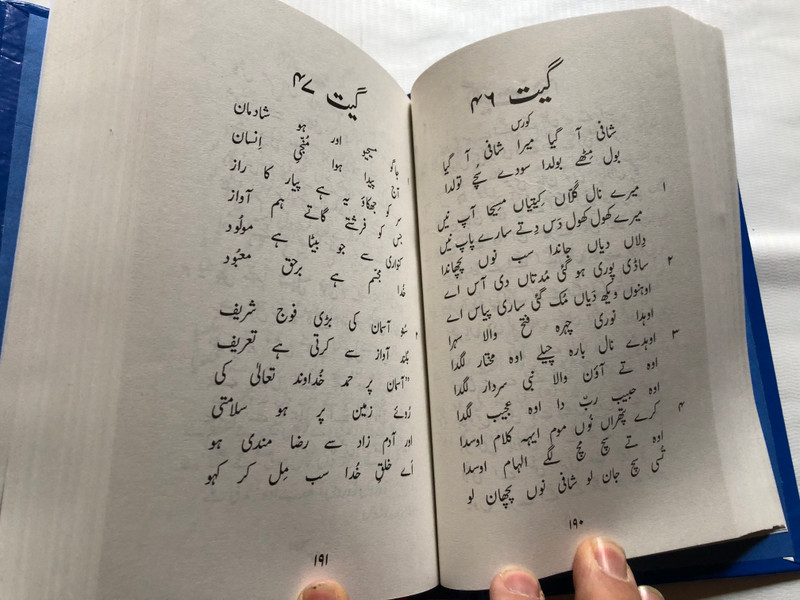 گیت ۴۶
کورس
شافی آ گیا میرا شافی آ گیا
بول مِٹھے بولدا سودے سُچے تولدا
۱ میرے نال گلّاں کِیتیاں مسیحا آپ نیں
میرے کھول کھول دَس دِتے سارے پاپ نیں
دِلاں دیاں جاندا سب نوں پچھاندا
۲ ساڈی پوری ہو گئی مُدتاں دی آس اے
اوہنوں ویکھ دیاں مُک گئی ساری پیاس اے
اوہدا نوری چہرہ فتح والا سہرا
۳ اوہدے نال بارہ چیلے اوہ مختار لگدا
اوہ تے آؤن والا نبی سردار لگدا
اوہ حبیب ربّ دا اوہ عجیب لگدا
۴ کرے پتھراں نُوں موم ایہہ کلام اوسدا
اوہ تے سچ مچ لگے الہام اوسدا
تُسی سچ جان لو شافی نوں پچھان لو
۱۹۰
گیت ۴۷
۱ جاگو مسیحیو اور ہو شادمان
آج پیدا ہوا مُنجّیِ اِنسان
سر کو جھکاؤ یہ ہے پیار کا راز
جس کو فرشتے گاتے ہم آواز
کنواری سے جو بیٹا ہے مولُود
خُدا مجسّم ہے برحق معبُود
۲ سُنو آسمان کی بڑی فوج شریف
بلند آواز سے کرتی ہے تعریف
”آسمان پر حمد خُداوند تعالیٰ کی
رُوئے زمین پر ہو سلامتی
اور آدم زاد سے رضا مندی ہو
اَے خلقِ خُدا سب مِل کر کہو
۱۹۱